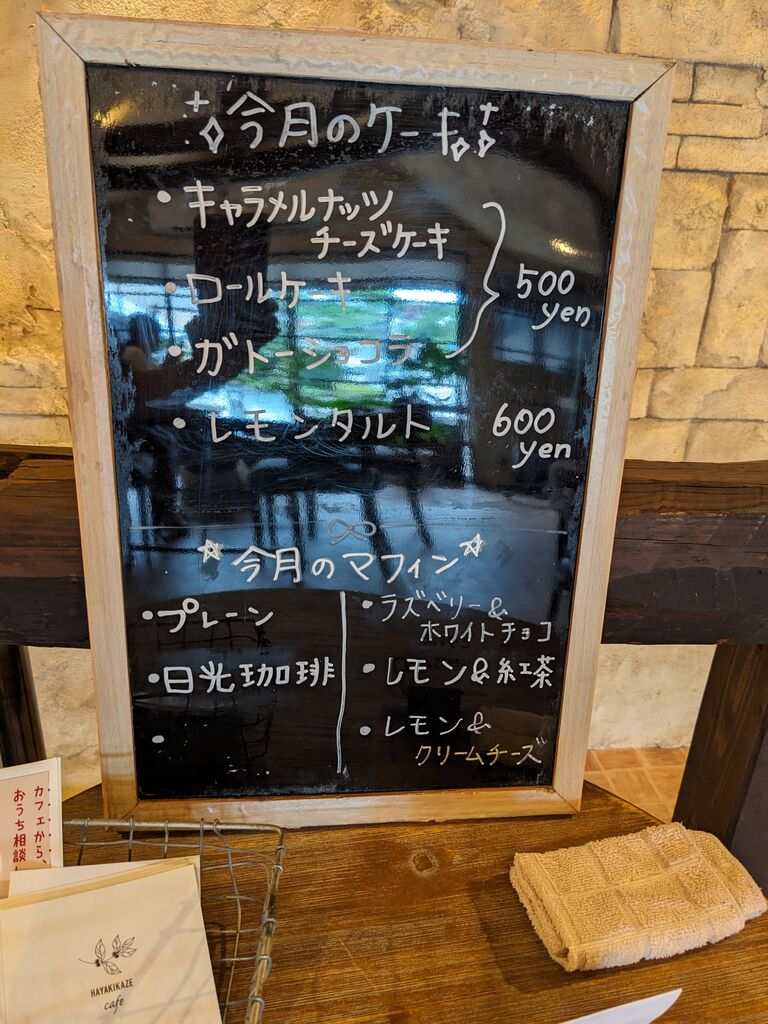 今月のケーキ
・キャラメルナッツ
チーズケーキ
・ロールケーキ
・ガトーショコラ
500
yen
・レモンタルト
600
yen
今月のマフィン
・プレーン
・日光珈琲
・
・ラズベリー&
ホワイトチョコ
・レモン&紅茶
・レモン&
クリームチーズ
カフェから、
おうち相談
HAYAKIKAZE
cafe